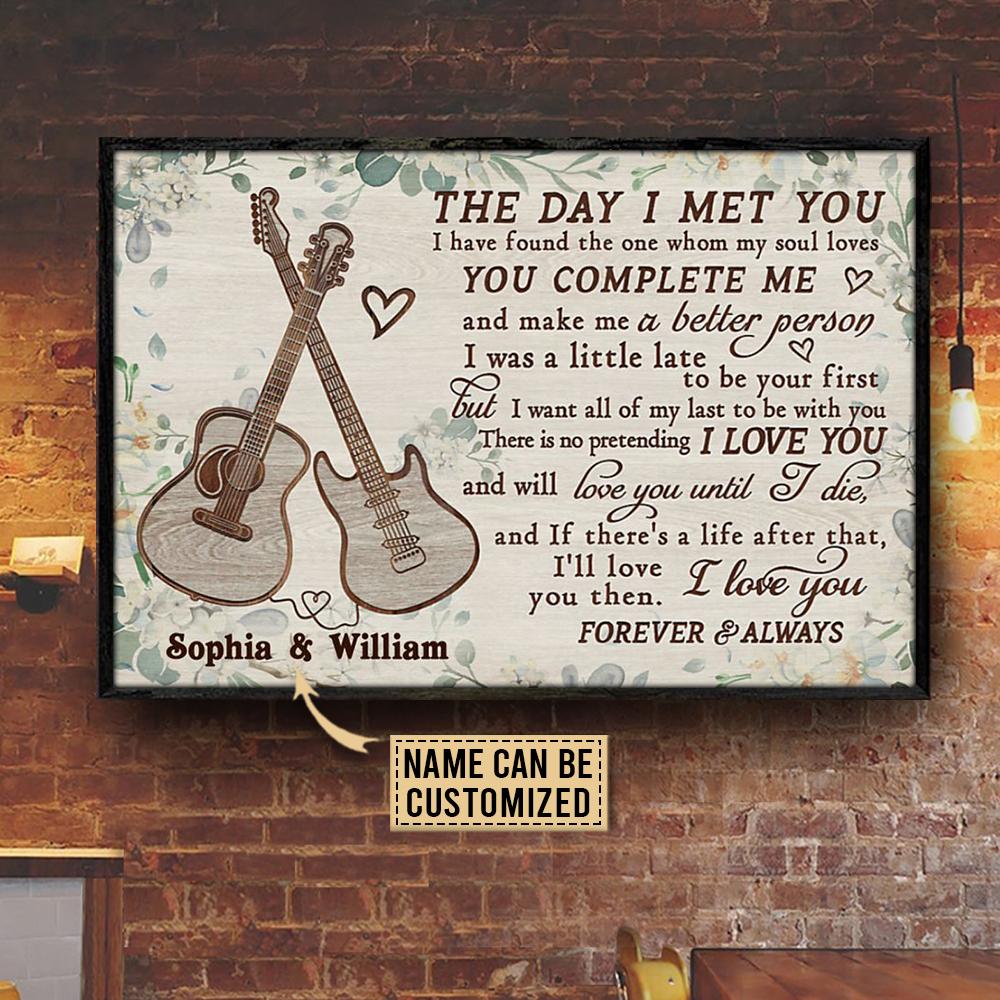 THE DAY I MET YOU
I have found the one whom my soul loves
YOU COMPLETE ME
and make me a better person
I was a little late
to be your first
but I want all of my last to be with you
There is no pretending I LOVE YOU
and will love you until I die,
and If there's a life after that,
I'll love
you then. I love you
FOREVER & ALWAYS
Sophia & William
NAME CAN BE
CUSTOMIZED